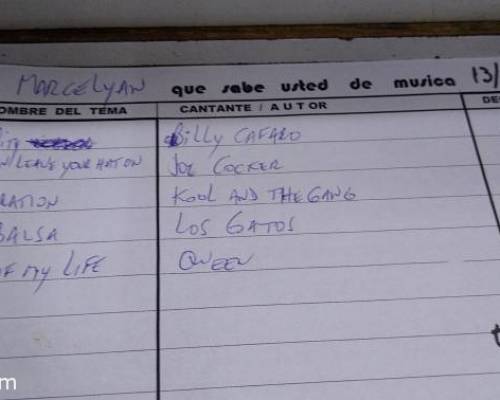 MARCELYAN que sabe usted de musica 13/
OMBRE DEL TEMA CANTANTE / AUTOR DE
Billy CAFARO
N LEAVE YOUR HAT ON JOE COCKER
RATION KOOL AND THE GANG
BALSA LOS GATOS
OF MY LIFE QUEEN
om